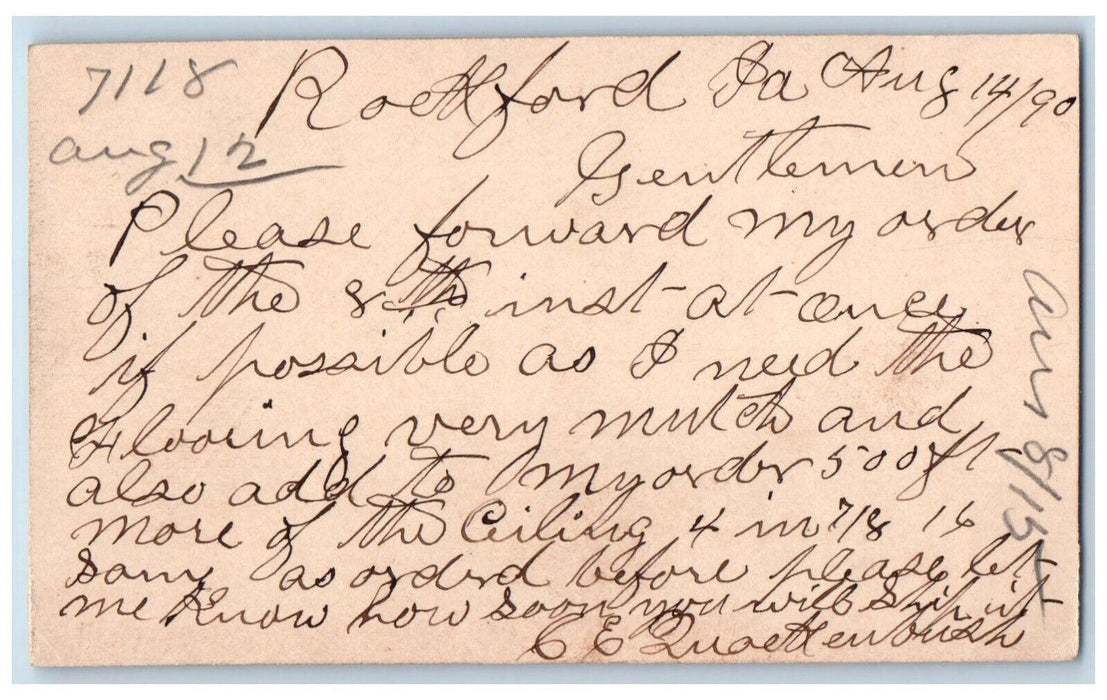 7118
Aug 12
Rockford Ia Aug 14/90
Gentlemen
Please forward my order
of the 8th inst - at - once
if possible as I need the
Flooring very mutch and
also add to my order 500 ft -
more of the Ceiling 4 in 7/8 16
Same as orderd before please let
me know how soon you will Ship it
C E Quackenbush
Ans 8/15